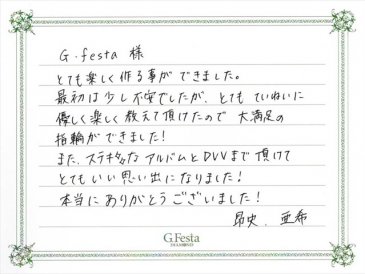 G.festa 様
とても楽しく作る事ができました。
最初は少し不安でしたが、とてもていねいに
優しく楽しく教えて頂けたので大満足の
指輪ができました!
また、ステキなアルバムとDVVまで頂けて
とてもいい思い出になりました!
本当にありがとうございました!
昂史、亜希
G.Festa
DIAMOND